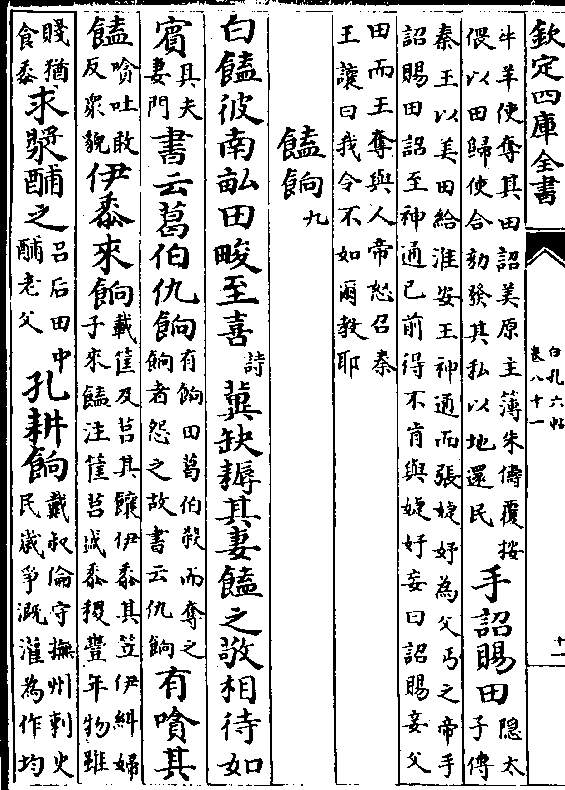 欽定四庫全書
白孔六帖
卷八十一
十一
牛羊使奪其田詔美原主簿朱儔覆按
偎以田歸使合劾發其私以地還民
手詔賜田
隱太
子傳
秦王以美田給淮安王神通而張婕妤為父丐之帝手
詔賜田詔至神通已前得不肯與婕妤妄曰詔賜妾父
田而王奪與人帝怒召秦
王讓曰我令不如爾教耶
饁餉九
白饁彼南畝田畯至喜詩冀缺耨其妻饁之敬相待如
賓
其夫
妻門
書云葛伯仇餉
有餉田葛伯殺而奪之
餉者怨之故書云仇餉
有噴其
饁
噴吐敢
反衆貌
伊黍來餉
載筐及筥其饟伊黍其笠伊糾婦
子來饁注筐筥盛黍稷豐年物雖
賤猶
食黍
求漿酺之
呂后田中
酺老父
孔耕餉
戴叔倫守撫州刺史
民歲爭溉灌為作均